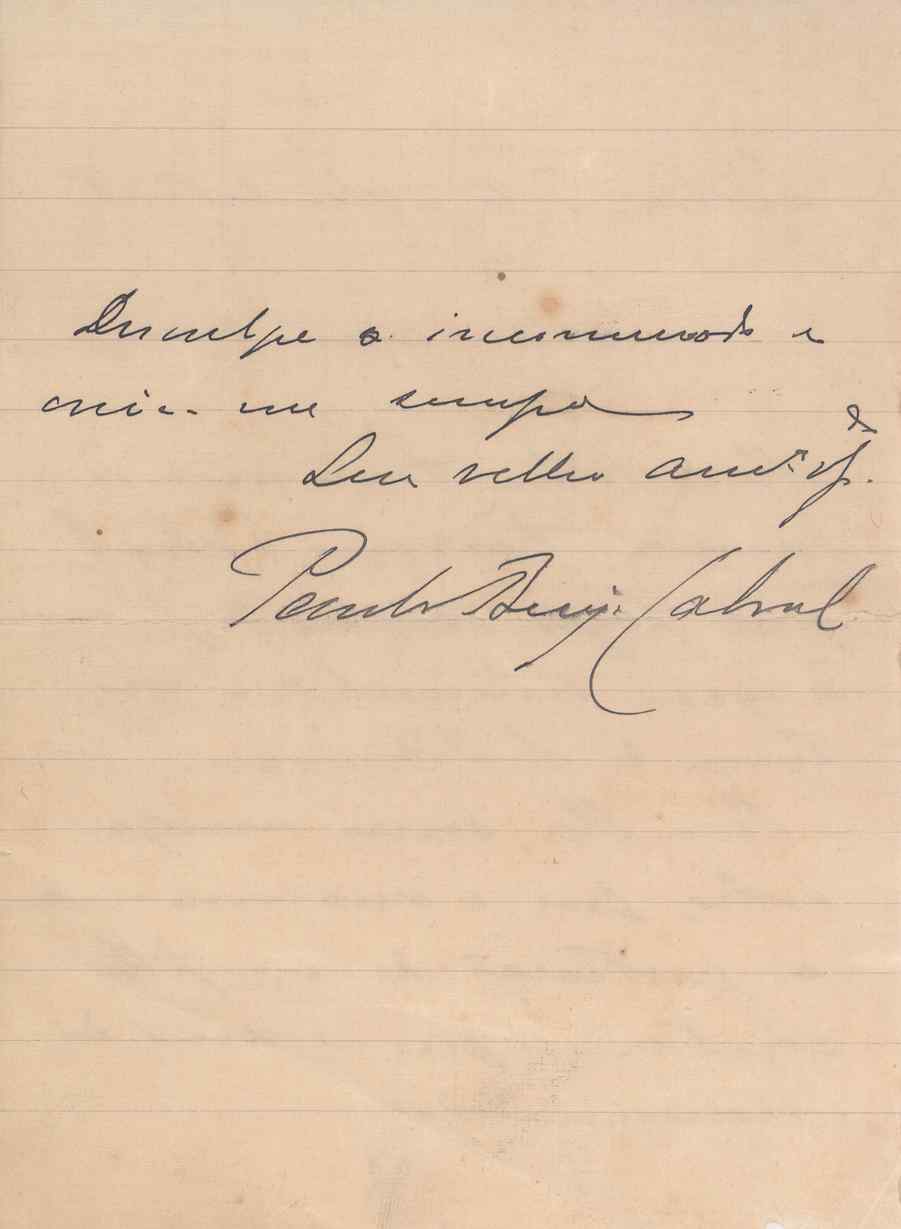 Desculpe o incommodo e
creia-me sempre
Seu velho Amº
Paulo Benj. Cabral